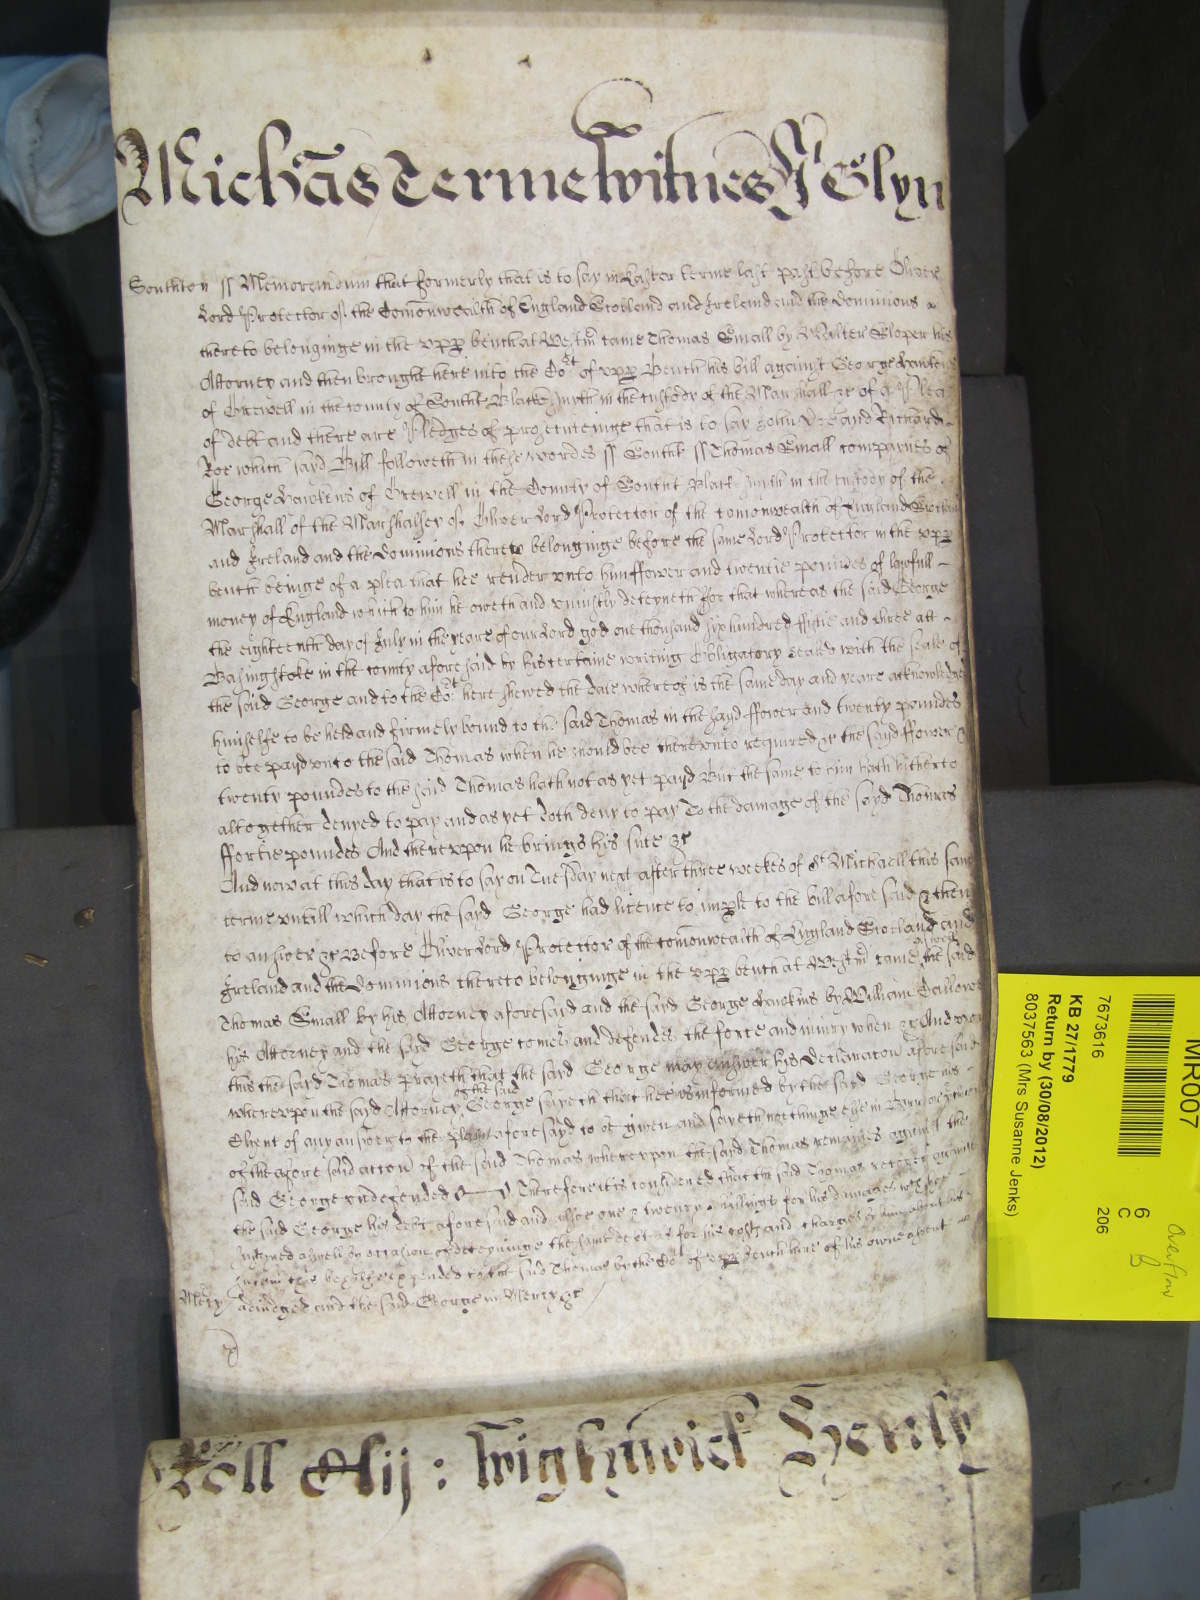 Michãs Terme Witnes J Glyn
Southton ss Memorandum that formerly that is to say in Easter terme last past before Oliver
Lord Protector of the Comonwealth of England Scotland and Ireland and the dominions
thereto belonginge in the vpp benth at Westm came Thomas Small by Walter Sloper his
Attorney and then brought here into the Cot of vpp Benth his bill against George Hawkens
of Crewell in the county of South Blacksmyth in the custody of the Marshall &c of a Plea
of debt and there are Pledges of prosecuteinge that is to say John Doe and Richard
Roe which sayd Bill followeth in these wordes ss South ss Thomas Small complaynes of
George Hawkens of Crewell in the County of South Blacksmyth in the custody of the
Marshall of the Marshalsey of Oliver Lord Protector of the comonwealth of England Scotland
and Ireland and the Dominions thereto belonginge before the same Lord Protector in the vpp
benth beinge of a plea that hee render vnto him ffower and twentie poundes of lawfull
money of England which to him he oweth and vniustly deteyneth for that whereas the said George
the eighteenth day of July in the yeare of our Lord god one thousand six hundred fiftie and three att
Basingstoke in the county aforesaid by his certaine writing Obligatory sealed with the seale of
the said George and to the Cot here shewed the date whereof is the same day and yeare acknowledged
himselfe to be held and firmely bound to the said Thomas in the sayd ffower and twenty poundes
to bee payd vnto the said Thomas when he should bee therevnto required yet the sayd ffower
twenty poundes to the said Thomas hath not as yet payd But the same to him hath hitherto
altogether denyed to pay and as yet doth deny to pay To the damage of the sayd Thomas
ffortie poundes And therevpon he brings his sute &c
And now at this day that is to say on Tuesday next after three weekes of St Michaell this same
terme vntill which day the sayd George had licence to imple to the bill aforesaid & then
to answer &c Before Oliver Lord Protector of the comonwealth of England Scotland and
Ireland and the Dominions thereto belonginge in the vpp benth at Westm came aswell the said
Thomas Small by his Attorney aforesaid and the sayd George Hawkins by William
his Attorney and the said George comes and defendes the force and iniury when &c And vpon
this the said Thomas prayeth that the said George may answer his declaracon aforesaid
wherevpon the sayd Attorney of the said George sayeth that hee is informed by the sayd George his
Clyent of any answer to the plaint aforesayd to be given and sayeth nothinge else in Barr
of the aforesaid accon of the said Thomas wherevpon the sayd Thomas remaines against the
said George vndefended Therefore it is considered that the said Thomas recover against
the said George his debt aforesaid and alsoe one & twenty shillings for his damages
susteyned aswell by occasion of deteyninge the same debt as for his costs and charges by him about his
sute in this behalfe expended to the said Thomas by the Cot of vpp benth here of his owne assent
Mercy adiudged and the said George in Mercy &c
Roll : Wightwick Henly
MR007
7673616
KB 27/1779
Return by (30/08/2012)
8037563 (Mrs Susanne Jenks)
6
C
206
Overflow
B